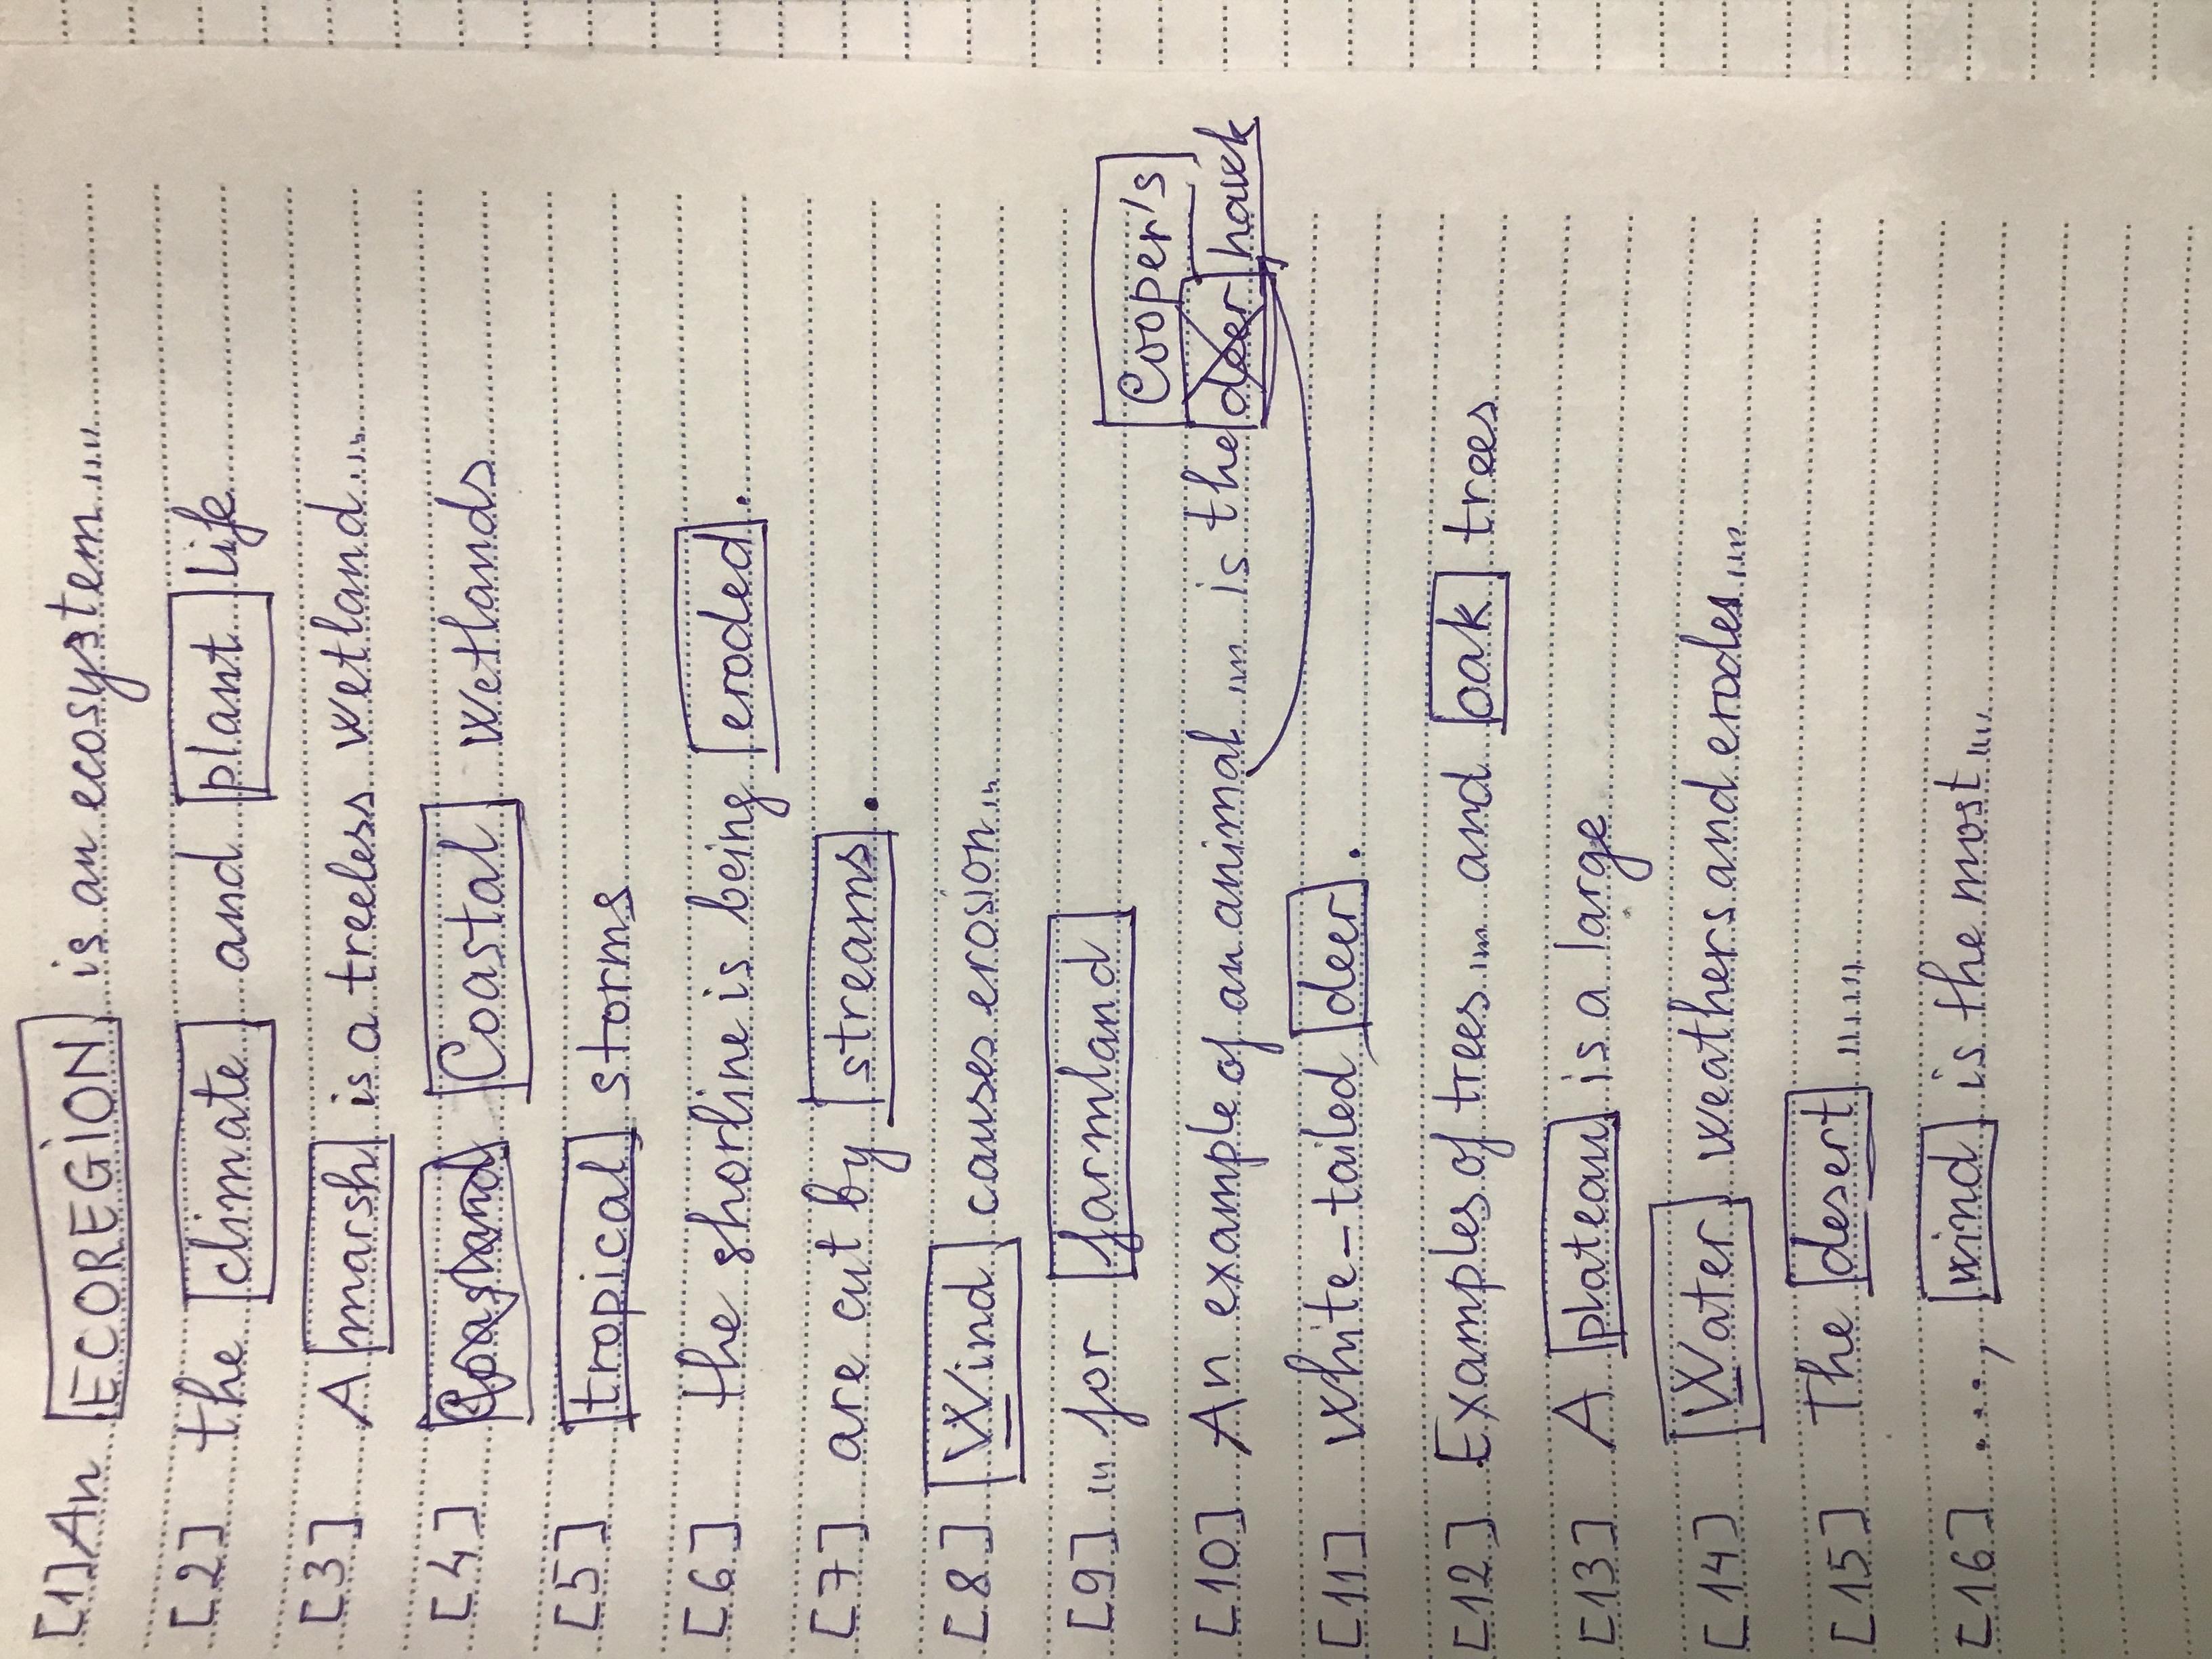 [1] An ECOREGION is an ecosystem....
[2] the climate and plant life
[3] A marsh is a treeless wetland....
[4] Coastal wetlands
[5] tropical storms
[6] the shorline is being eroded.
[7] are cut by streams.
[8] Wind causes erosion...
[9] ... for farmland
Cooper's
[10] An example of an animal .... is the deer hawk
[11] white-tailed deer.
[12] Examples of trees .... and oak trees
[13] A plateau is a large
[14] Water weathers and erodes....
[15] The desert ......
[16] ...., wind is the most....